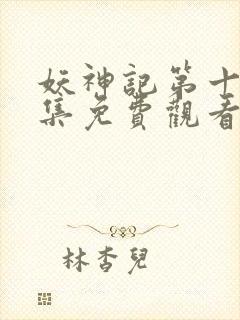 妖神記第十
集免費觀看
林杏兒